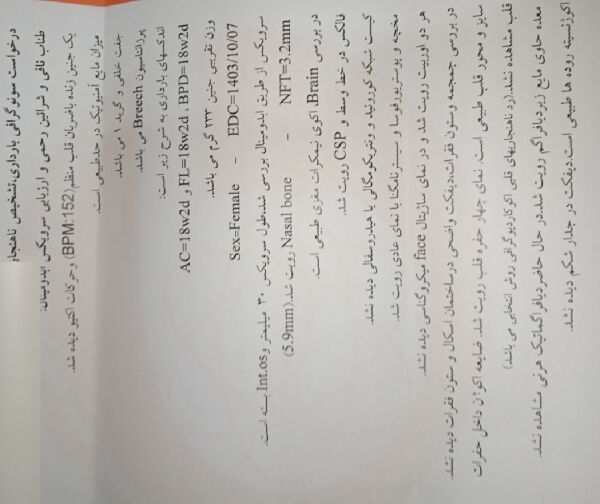 درخواست سونوگرافی بارداری،تشخیص ناهنجار
طناب نافی و شرائین رحمی و ارزیابی سرویکس ابدومینال:
یک جنین زنده باضربان قلب منظم(BPM:152) وحرکات اکتیو دیده شد.
میزان مایع آمنیوتیک در حدطبیعی است.
جفت خلفی و گرید ۱ می باشد.
پرزانتاسیون Breech می باشد.
اندکسهای بارداری به شرح زیر است:
AC=18w2d و FL=18w2d ، BPD=18w2d
وزن تقریبی جنین ۲۳۲ گرم می باشد.
Sex=Female - EDC=1403/10/07
سرویکس از طریق ابدومینال بررسی شد.طول سرویکس ۳۰ میلیمتر و Int.os بسته است.
NFT=3.2mm - Nasal bone رویت شد.(5.9mm)
در بررسی Brain، اکوی نیمکرات مغزی طبیعی است.
فالکس در خط وسط و CSP رویت شد.
کیست شبکه کوروئید و ونتریکومگالی یا هیدروسفالی دیده نشد.
مخچه و پوستریورفوسا و سیسترنامگنا با نمای عادی رویت شد.
هر دو اوربیت رویت شد و در نمای ساژیتال face میکروگناسی دیده نشد.
در بررسی جمجمه وستون فقرات،دیفکت واضحی درساختمان اسکال و ستون فقرات دیده نشد.
سایز و محور قلب طبیعی است. نمای چهار حفره قلب رویت شد. ضایعه اکوژن داخل حفرات
قلب مشاهده نشد.(رد ناهنجاریهای قلبی اکوکاردیوگرافی روش انتخابی می باشد)
معده حاوی مایع زیردیافراگم رویت شد.در حال حاضردیافراگماتیک هرنی مشاهده نشد.
اکوژنسیته روده ها طبیعی است.دیفکت در جدار شکم دیده نشد.